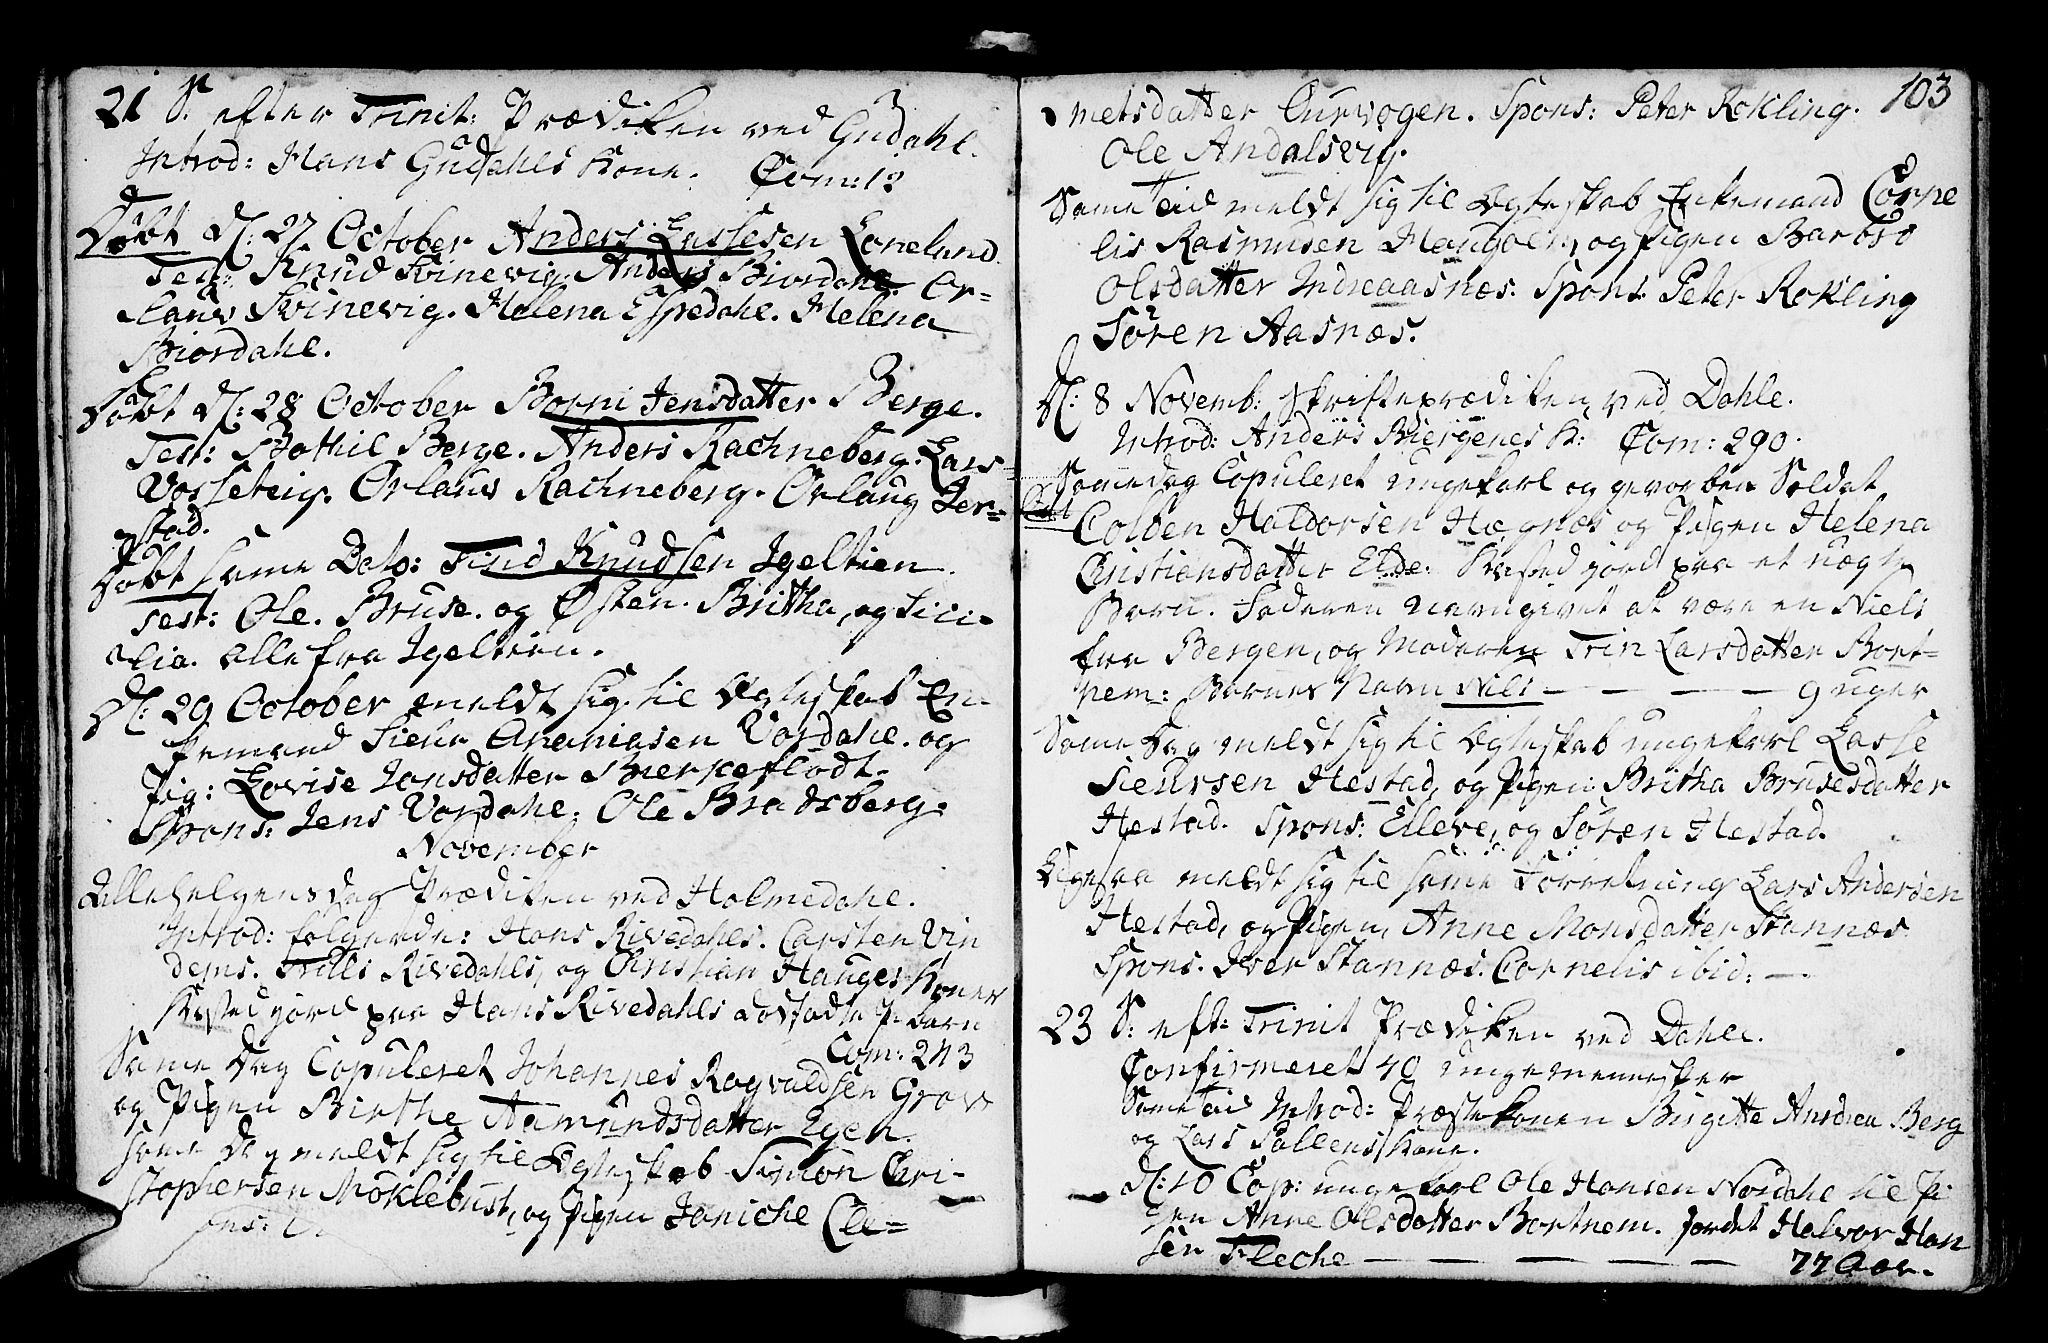 21 S. efter Trinit: Prædiken ved Gudahl.
Introd: Hans Gudahls Kone. Com: 12
Döbt d: 27 October Anders Lassesen Lonelund.
Test: Knud Svinevig. Anders Biordahl. Or-
laus Svinevig. Helena Espedahl. Helena
Biordahl.
Döbt d: 28 October Borni Jensdatter Berge.
Test: Bothil Berge. Anders Rachneberg. Lars
Vosseteig. Orlaus Rachneberg. Orlaug Jer-
stad.
Döbt same Dato: Find Knudsen Igeltien.
Test: Ole. Bruse. og Østen. Britha, og Sici-
lia. alle fra Igeltien.
d: 29 October meldt sig til Egteskab En-
kemand Siehr Ananiasen Vordahl. og
Pig: Lovise Jonsdatter Bierkeflodt.
Spons: Jens Vordahl. Ole Bradsberg.
November
Allehelgensdag Prædiken ved Holmedahl.
Introd: følgende: Hans Rivedahls. Carsten Vin
dems. Nills Rivedahls, og Christian Hauges Koner
Kasted jord paa Hans Rivedahls P: barn
Com: 243
Same Dag Copuleret Johannes Ragvaldsen Grov
og Pigen Birthe Aamundsdatter Egen.
same dag meldt sig til Egteskab Simon Chri-
stophersen Möklebust, og Pigen Janiche Cle-
103
metsdatter Ourvogen. Spons: Peter Rokling.
Ole Andalsvig.
Same Tid meldt sig til Egteskab Enkemand Corne
lis Rasmusen Haugoen, og Pigen Barbro
Olsdatter Indreaasnæs. Spons. Peter Rokling
Sören Aasnæs.
d: 8 Novemb: Skrifteprædiken ved Dahle.
Introd: Anders Biergenes K: Com: 290.
Same dag Copuleret ungekarl og gevorben Soldat
Colben Haldorsen Hægnæs og Pigen Helena
Christiansdatter Elde. Kasted jord paa et uægte
Barn. Faderen navngivet at være en Niels
fra Bergen, og Moderen Trin Larsdatter Bort-
nem: Barnes Navn Nils — — — 9 uger
Same Dag meldt sig til Egteskab ungekarl Lasse
Siursen Hestad, og Pigen Britha Brusesdatter
Hestad. Spons: Elleve, og Sören Hestad.
Ligesaa meldt sig til same Forretning Lars Andersen
Hestad, og Pigen, Anne Monsdatter Stannæs
Spons. Iver Stannæs. Cornelis ibid: —
23 S: eft: Trinit Prædiken ved Dahle.
Confirmeret 40 unge mennesker
Same Tid Introd: Præstekonen Birgitte Andrea Berg
og Lars Sallens Kone.
d: 10 Cop: ungekarl Ole Hansen Nordahl til Pi
gen Anne Olsdatter Bortnem. Jordet Halvor Han
sen Fleche — — — — — 77 Aar.